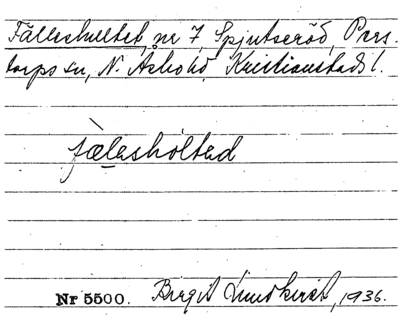 Fälleshultet, nr 7, Spjutseröd, Pers-
torps sn, N. Åsbo hd, Kristianstads l.
fælashòltad
Nr 5500. Birgit Lundkvist, 1936.